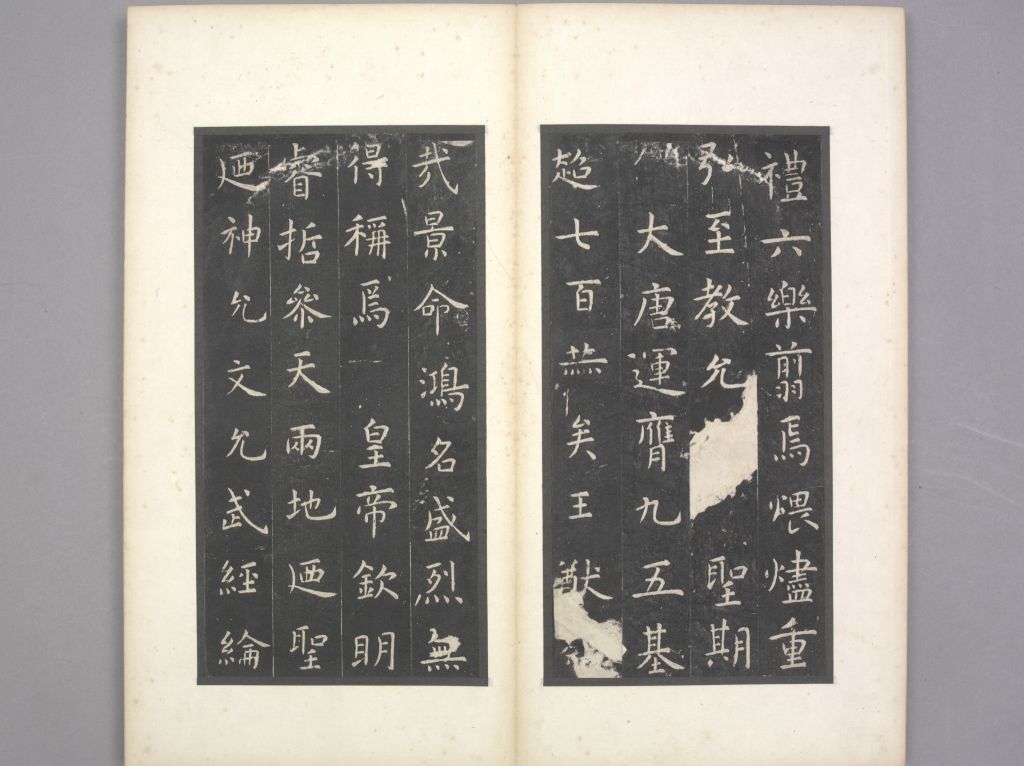 禮六樂翦焉煨燼重
弘至教允聖期
大唐運膺九五基
超七百赫矣王猷
哉景命鴻名盛烈無
得稱焉皇帝欽明
睿哲參天兩地迺聖
迺神允文允武經綸